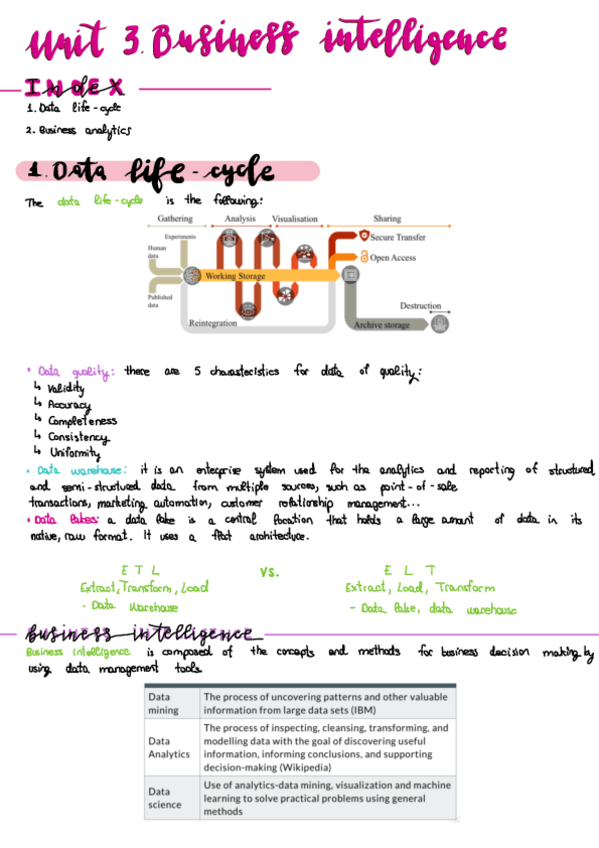 Unit 3. Business intelligence
Index
1. Data life-cycle
2. Business analytics
1. Data life-cycle
The data life-cycle is the following:
Gathering Analysis Visualisation Sharing
Experiments
Human
data
Secure Transfer
Open Access
Working Storage
Published
data
Destruction
Reintegration
Archive storage
• Data quality: there are 5 characteristics for data of quality:
↳ Validity
↳ Accuracy
↳ Completeness
↳ Consistency
↳ Uniformity
• Data warehouse: it is an enterprise system used for the analytics and reporting of structured
and semi-structured data from multiple sources, such as point-of-sale
transactions, marketing automation, customer relationship management...
• Data lakes: a data lake is a central location that holds a large amount of data in its
native, raw format. It uses a flat architecture.
ETL vs. ELT
Extract, Transform, Load Extract, Load, Transform
- Data Warehouse - Data lake, data warehouse
Business intelligence
Business intelligence is composed of the concepts and methods for business decision making by
using data management tools
Data
mining
The process of uncovering patterns and other valuable
information from large data sets (IBM)
Data
Analytics
The process of inspecting, cleansing, transforming, and
modelling data with the goal of discovering useful
information, informing conclusions, and supporting
decision-making (Wikipedia)
Data
science
Use of analytics-data mining, visualization and machine
learning to solve practical problems using general
methods